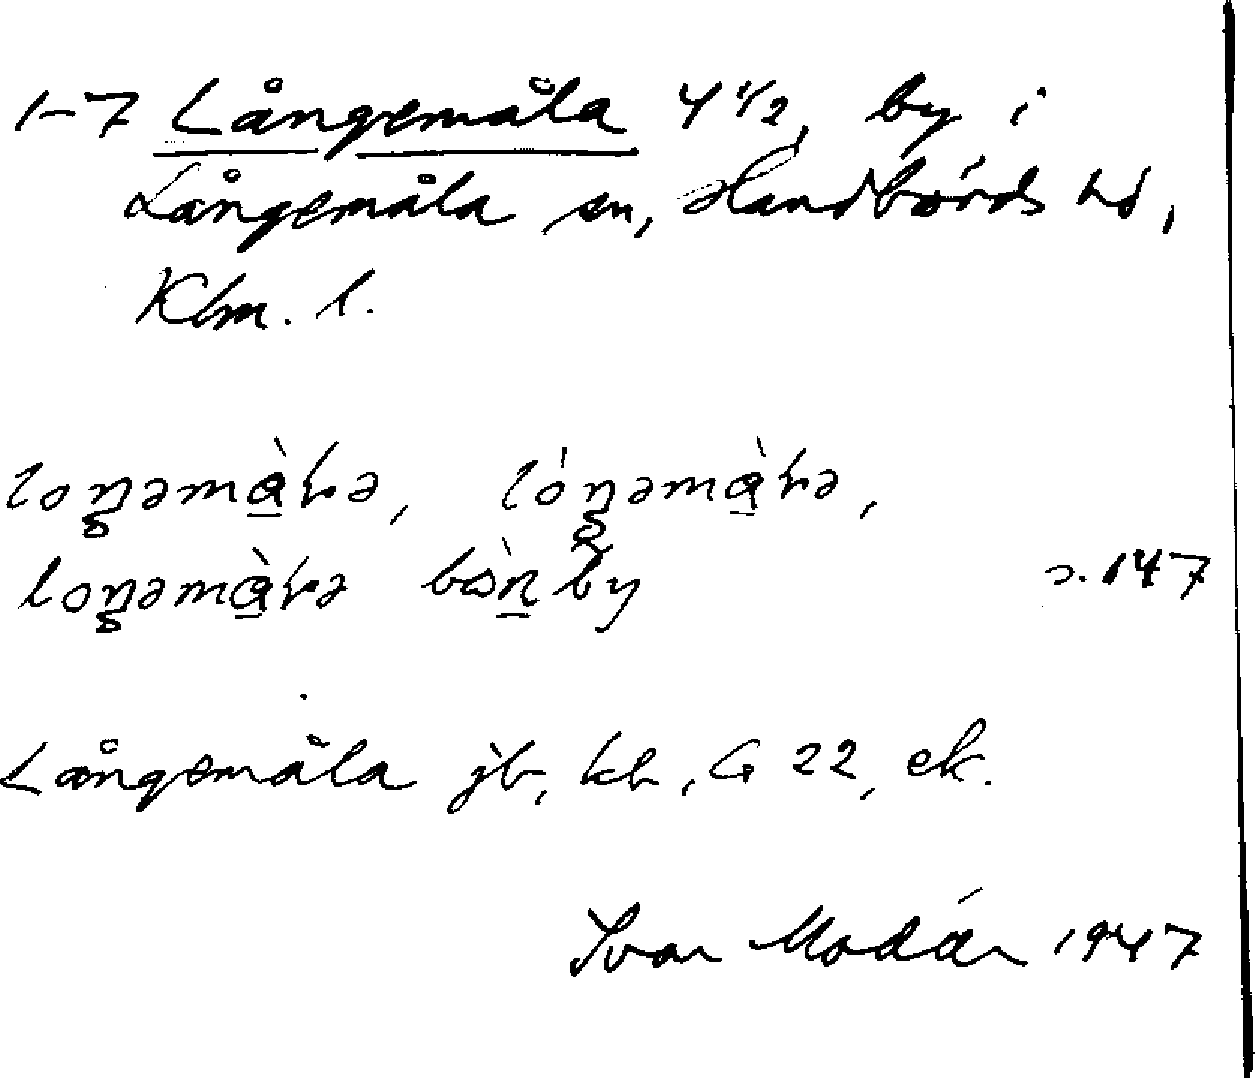 1-7 Långemåla 4 1/2, by i
Långemåla sn, Handbörds hd,
Klm. l.
loŋəmɑ̀ɾə, lóŋəmɑ̀ɾə,
loŋəmɑ̀ɾə by
s. 147
Långemåla jb, kb, G 22, ek.
Ivar Modér 1947